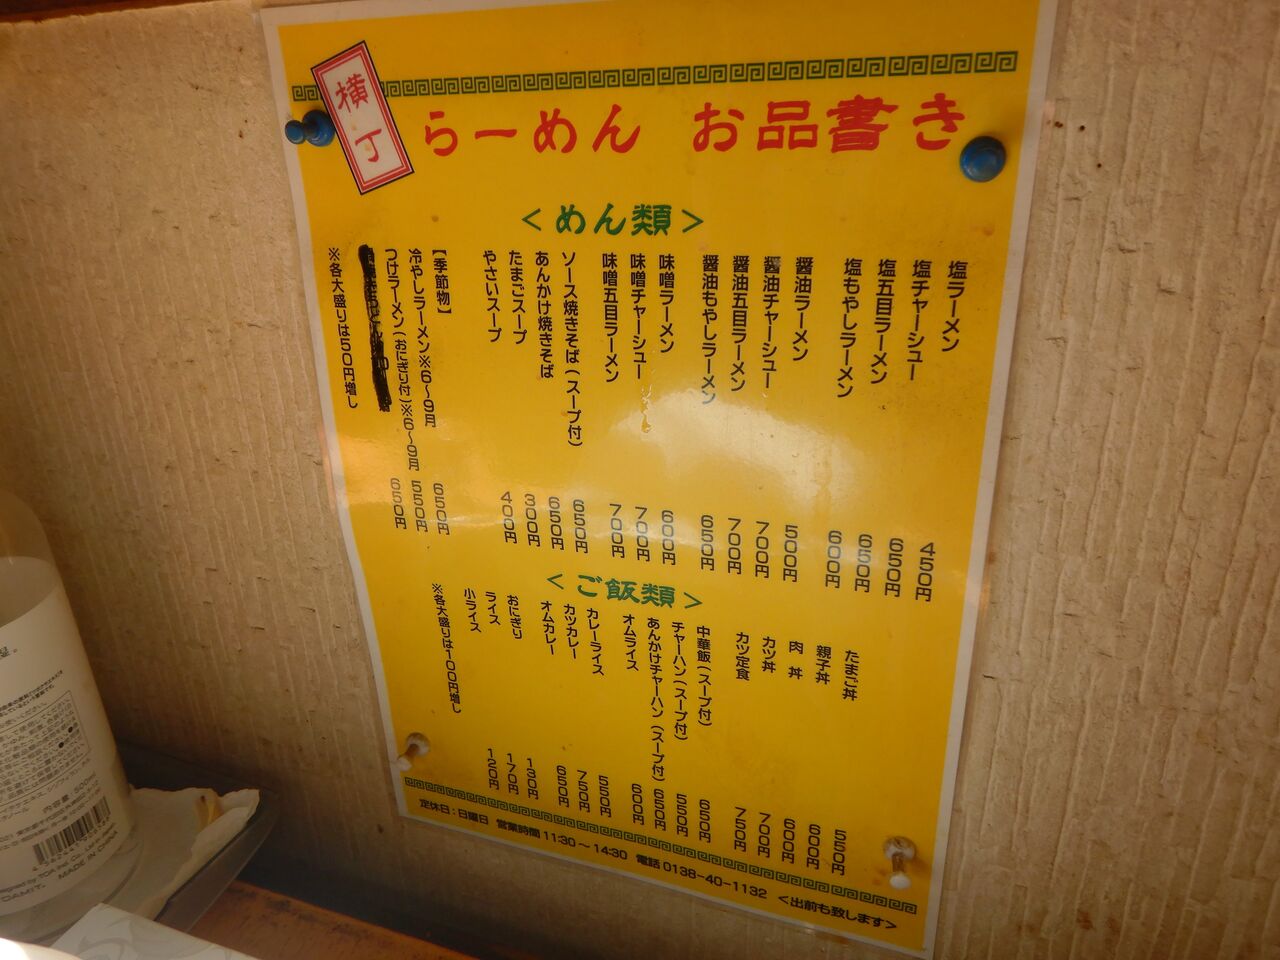 横丁
らーめん お品書き
<めん類>
塩ラーメン 450円
塩チャーシュー 650円
塩五目ラーメン 650円
塩もやしラーメン 600円
醤油ラーメン 500円
醤油チャーシュー 700円
醤油五目ラーメン 700円
醤油もやしラーメン 650円
味噌ラーメン 600円
味噌チャーシュー 700円
味噌五目ラーメン 700円
ソース焼きそば(スープ付) 650円
あんかけ焼きそば 650円
たまごスープ 300円
やさいスープ 400円
【季節物】
冷やしラーメン※6〜9月 650円
つけラーメン(おにぎり付)※6〜9月 550円
650円
※各大盛りは50円増し
<ご飯類>
たまご丼 550円
親子丼 600円
肉丼 600円
カツ丼 700円
カツ定食 750円
中華飯(スープ付) 650円
チャーハン(スープ付) 550円
あんかけチャーハン(スープ付) 650円
オムライス 600円
カレーライス 550円
カツカレー 750円
オムカレー 650円
おにぎり 130円
ライス 170円
小ライス 120円
※各大盛りは100円増し
定休日:日曜日 営業時間 11:30〜14:30 電話 0138-40-1132 <出前も致します>
内容量:500ml
MADE IN CHINA